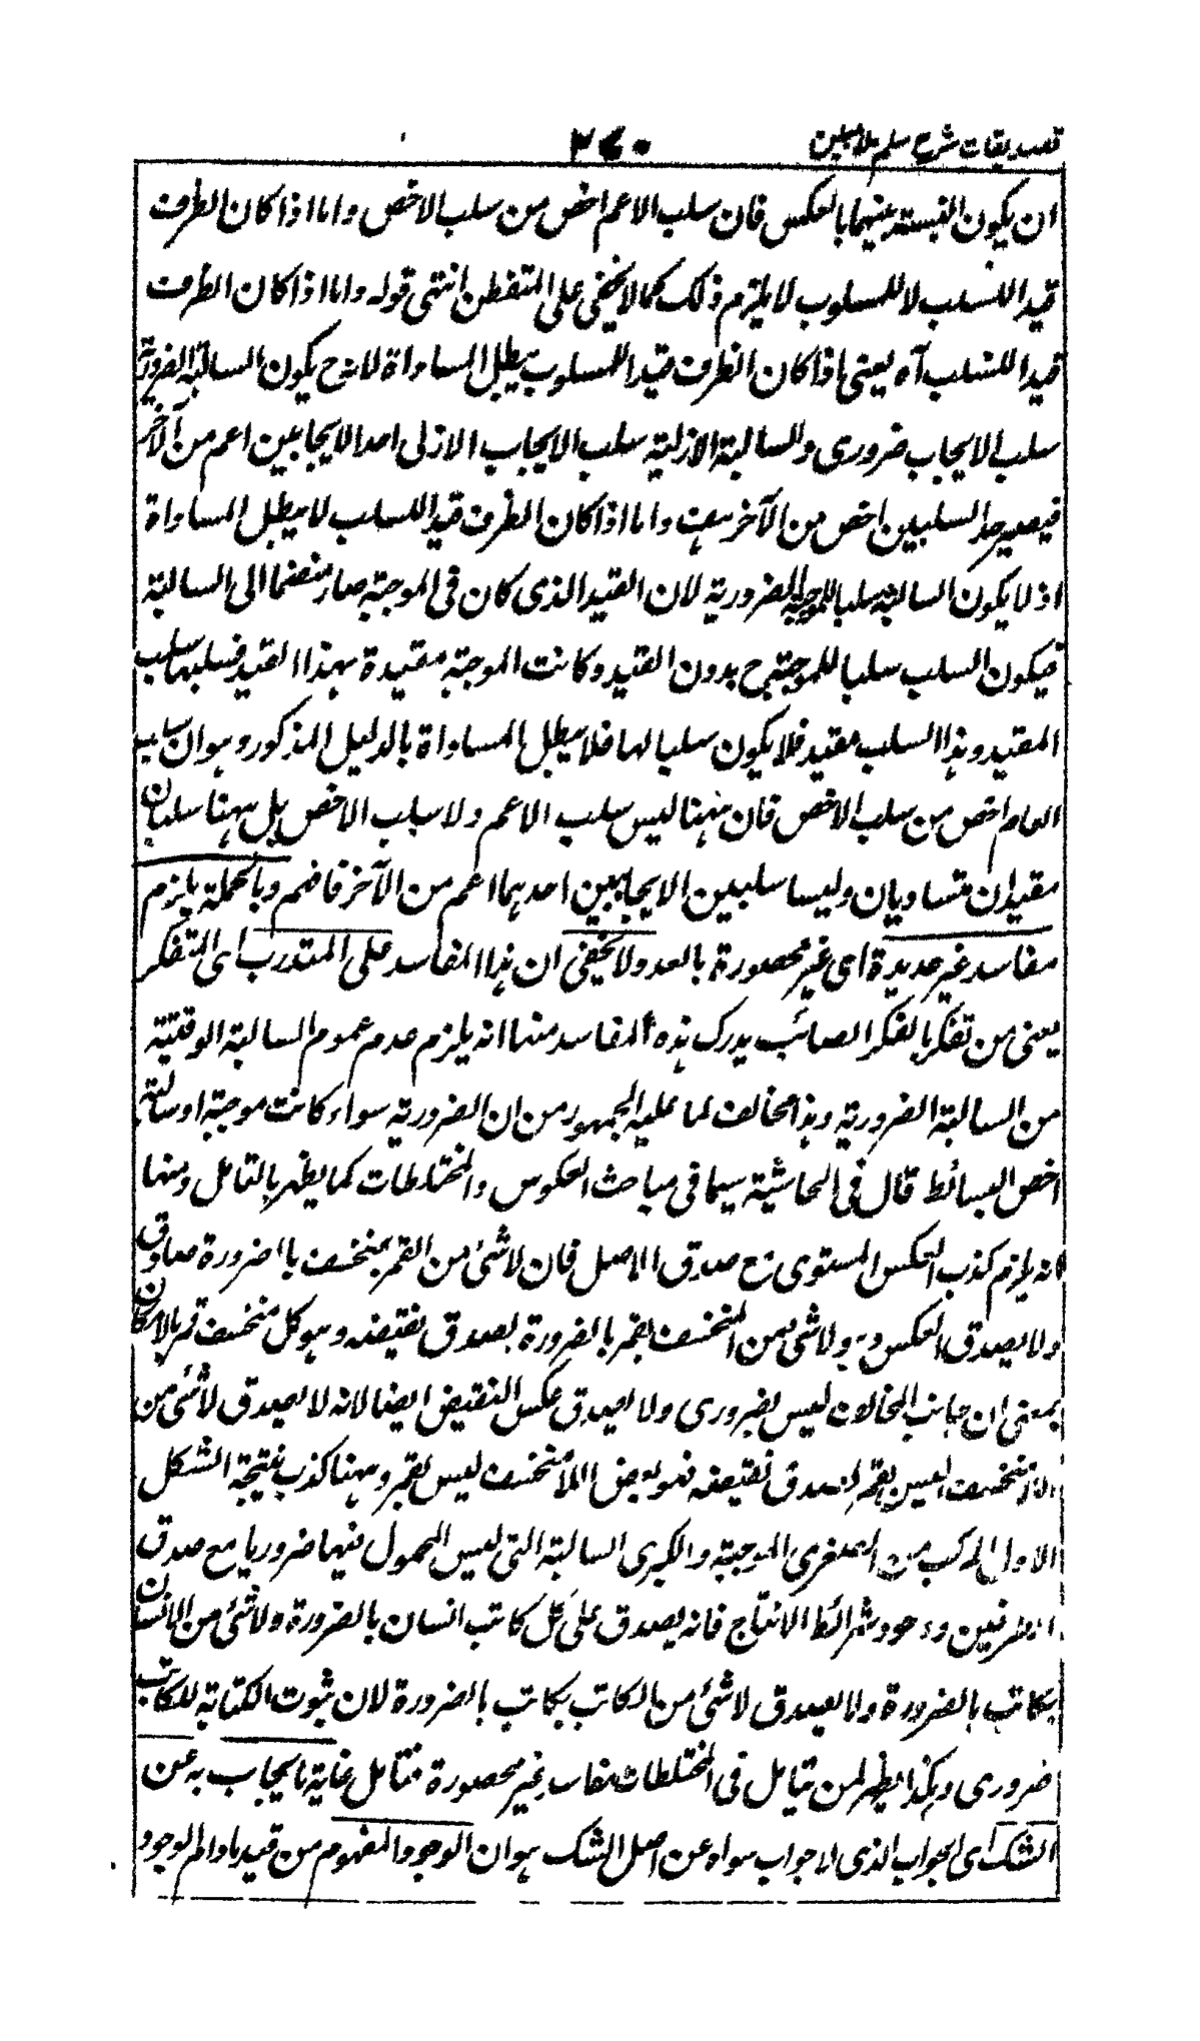 تصديقات شرح سلم ملا مبين
٢٦٠
ان يكون النسبة بينهما بالعكس فان سلب الاعم اخص من سلب الاخص واما اذا كان الطرف
قيدا للسلب لا للمسلوب لا يلزم ذلك كما لا يخفى على المتفطن انتهى قوله واما اذا كان الطرف
قيدا للسلب آه يعنى اذا كان الظرف قيدا للمسلوب يبطل المساواة لانه ح يكون السالبة الضرورية
سلب الايجاب ضرورى والسالبة الازلية سلب الايجاب الازلى احد الايجابين اعم من الآخر
فيصير احد السلبين اخص من الآخر بهت واما اذا كان الظرف قيد السلب لا يبطل المساواة
اذ لا يكون السالبة سلبا للموجبة الضرورية لان القيد الذى كان فى الموجبة صار منضما الى السالبة
فيكون السلب سلبا للموجبة ح بدون القيد وكانت الموجبة مقيدة بهذا القيد فسلبها سلب
المقيد وهذا السلب مقيد فلا يكون سلبا لها فلا يبطل المساواة بالدليل المذكور وهو ان سلب
العام اخص من سلب الاخص فان ههنا ليس سلب الاعم ولا سلب الاخص بل ههنا سلبان
مقيدان متساويان وليسا سلبين الايجابين احدهما اعم من الآخر فافهم وبالجملة يلزم
مفاسد غير عديدة اى غير محصورة بالعد ولا يخفى ان هذا المفاسد على المتدرب اى المتفكر
يعنى من تفكر بالفكر الصائب يدرك هذه المفاسد منها انه يلزم عدم عموم السالبة الوقتية
من السالبة الضرورية وهذا مخالف لما عليه الجمهور من ان الضرورية سواء كانت موجبة او سالبة
اخص البسائط قال فى الحاشية سيما فى مباحث العكوس والمختلطات كما يظهر بالتامل ومنها
انه يلزم كذب العكس المستوى مع صدق الاصل فان لا شئ من القمر بمنخسف بالضرورة صادق
ولا يصدق العكس وهو لا شئ من المنخسف بقمر بالضرورة لصدق نقيضه وهو كل منخسف قمر بالامكان
بمعنى ان جانب المخالف ليس بضرورى ولا يصدق عكس النقيض ايضا لانه لا يصدق لا شئ من
اللامنخسف ليس بقمر لصدق نقيضه فهو بعض اللامنخسف ليس بقمر ومنها كذب نتيجة الشكل
الاول المركب من الصغرى الموجبة والكبرى السالبة التى ليس المحمول فيها ضروريا مع صدق
الطرفين ووجود شرائط الانتاج فانه يصدق على كل كاتب انسان بالضرورة ولا شئ من الانسان
بكاتب بالضرورة ولا يصدق لا شئ من الكاتب بكاتب بالضرورة لان ثبوت الكتابة للكاتب
ضرورى وهكذا يظهر لمن تيامل فى المختلطات مفاسد غير محصورة فتامل غاية ما يجاب به عن
الشك اى الجواب الذى لا جواب سواه عن اصل الشك هو ان الوجود المفهوم من قيد ما دام الوجود